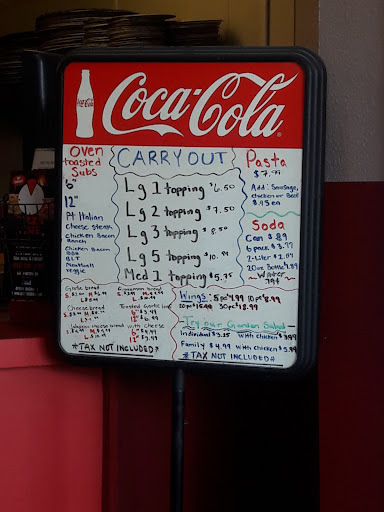 Coca-Cola
Oven
toasted
Subs
6"
12"
Pt Italian
cheese steak
Chicken Bacon
Ranch
Chicken Bacon
BBQ
BLT
Meatball
veggie
CARRY OUT
Lg 1 topping $6.50
Lg 2 topping $7.50
Lg 3 topping $8.50
Lg 5 topping $10.99
Med 1 topping $5.75
Pasta
$7.99
Add: Sausage,
chicken or Beef
$.95 ea
Soda
Can $.89
6 pack $3.99
2-Liter $2.09
20oz Bottle 1.89
Water
79¢
Garlic bread
Cinnamon bread
Cheese bread
Toasted Garlic
with Cheese
6" $3.99
12" $6.99
cheese bread
*TAX NOT INCLUDED*
Wings: 5pc $4.99 10pc $8.99
20pc $15.99 30pc $18.99
Try our Garden Salad
Individual $3.25 with chicken $3.99
Family $4.99 with chicken $5.99
*TAX NOT INCLUDED*